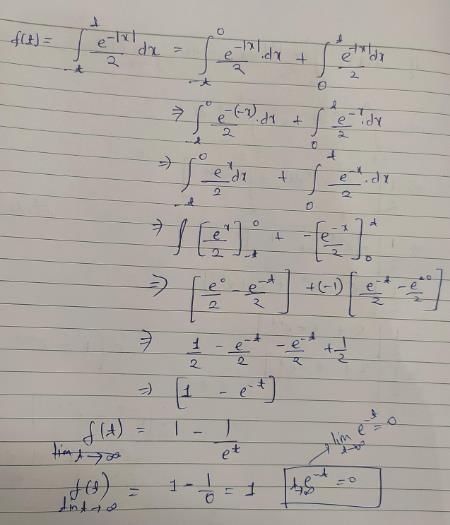 f(t) = ∫_{-t}^{t} e^{-|x|}/2 dx = ∫_{-t}^{0} e^{-|x|}/2 .dx + ∫_{0}^{t} e^{-|x|}/2 dx
⇒ ∫_{-t}^{0} e^{-(-x)}/2 .dx + ∫_{0}^{t} e^{-x}/2 .dx
⇒ ∫_{-t}^{0} e^{x}/2 dx + ∫_{0}^{t} e^{-x}/2 .dx
⇒ ∫ [e^{x}/2]_{-t}^{0} + -[e^{-x}/2]_{0}^{t}
⇒ [e^{0}/2 - e^{-t}/2] + (-1) [e^{-t}/2 - e^{-0}/2]
⇒ 1/2 - e^{-t}/2 - e^{-t}/2 + 1/2
⇒ [1 - e^{-t}]
f(t) = 1 - 1/e^{t}
lim t→∞
lim t→∞ e^{-t} = 0
f(t) = 1 - 1/0 = 1
lim t→∞
e^{-t} = 0
t→∞